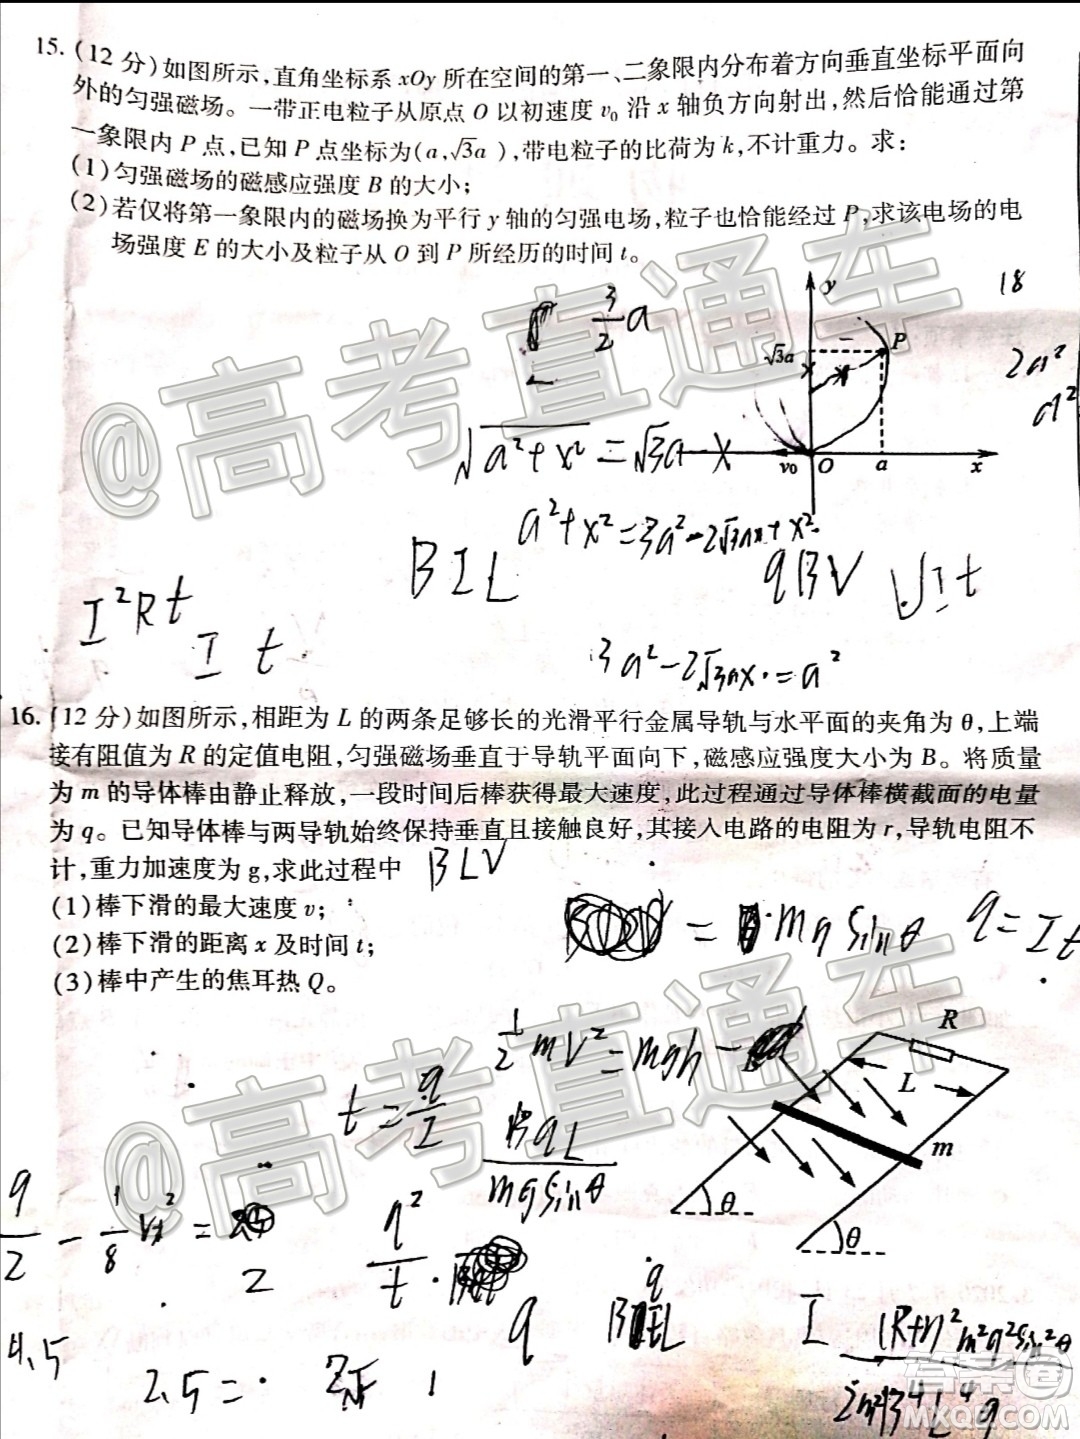 15. (12 分)如图所示,直角坐标系 xOy 所在空间的第一、二象限内分布着方向垂直坐标平面向
外的匀强磁场。一带正电粒子从原点 O 以初速度 v₀ 沿 x 轴负方向射出,然后恰能通过第
一象限内 P 点,已知 P 点坐标为(a,√3a),带电粒子的比荷为 k,不计重力。求:
(1)匀强磁场的磁感应强度 B 的大小;
(2)若仅将第一象限内的磁场换为平行 y 轴的匀强电场,粒子也恰能经过 P,求该电场的电
场强度 E 的大小及粒子从 O 到 P 所经历的时间 t。
y
18
3/2 a
√3a
P
2a²
a²
√(a²+x²) = √3a - x
v₀ O a x
a²+x² = 3a² - 2√3ax + x²
BIL
qBV
UIt
I²Rt
I t
3a² - 2√3ax = a²
16. (12 分)如图所示,相距为 L 的两条足够长的光滑平行金属导轨与水平面的夹角为 θ,上端
接有阻值为 R 的定值电阻,匀强磁场垂直于导轨平面向下,磁感应强度大小为 B。将质量
为 m 的导体棒由静止释放,一段时间后棒获得最大速度,此过程通过导体棒横截面的电量
为 q。已知导体棒与两导轨始终保持垂直且接触良好,其接入电路的电阻为 r,导轨电阻不
计,重力加速度为 g,求此过程中
BLV
(1)棒下滑的最大速度 v;
(2)棒下滑的距离 x 及时间 t;
(3)棒中产生的焦耳热 Q。
= mg sinθ
q = It
R
L
m
θ
θ
½mV² = mgh -
t = q/I
BqL/mg sinθ
q²/t
9/2 -
2
q
4.5
2.5 =
@高考直通车
@高考直通车
答案圈
MXQE.COM